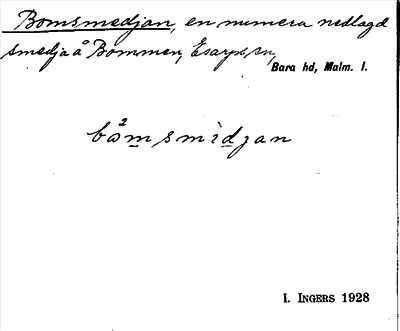 Bomsmedjan, en numera nedlagd
smedja å Bommen, Esarps sn,
Bara hd, Malm. l.
bω̊²m̲smìd̲jan
I. INGERS 1928